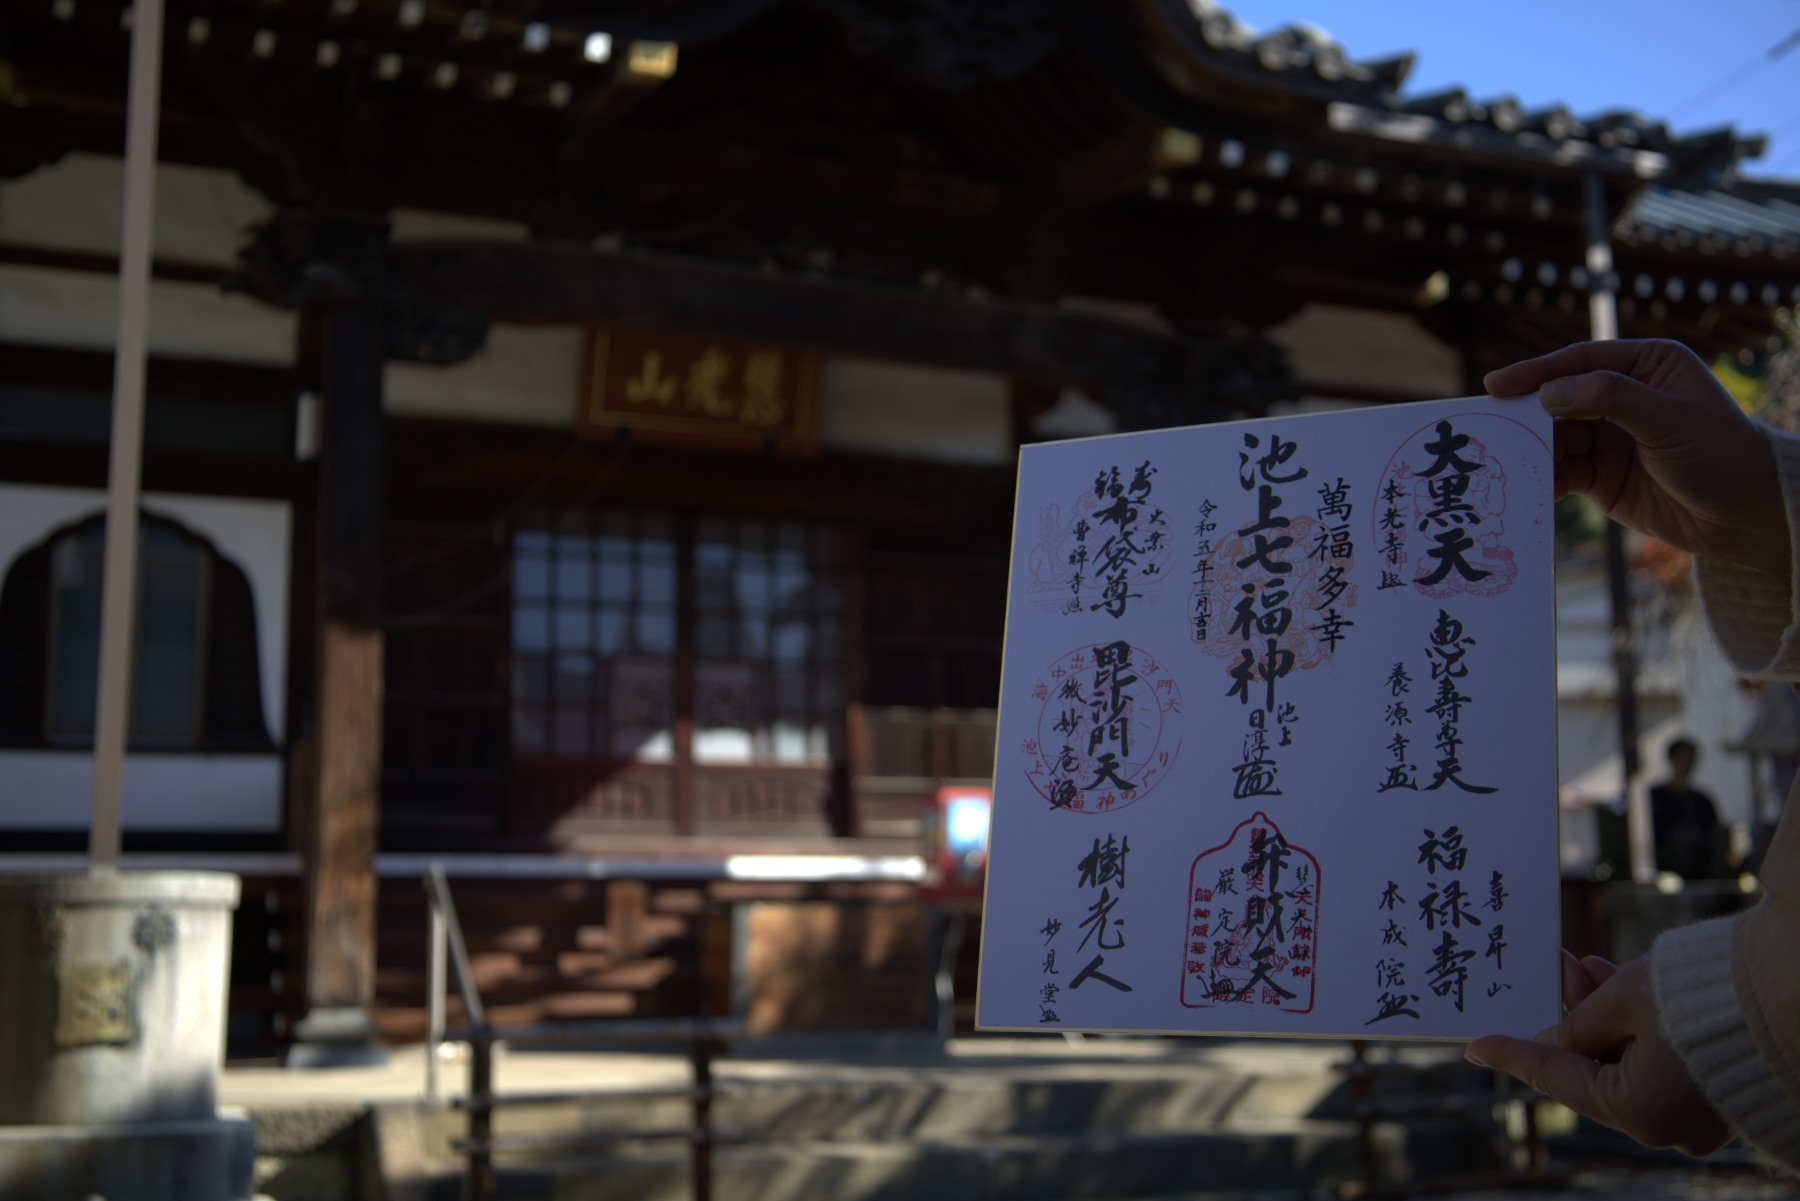 慈光山
大黒天
本光寺
恵比寿尊天
養源寺
喜昇山
福禄寿
本成院
萬福多幸
池上七福神
令和五年十二月吉日
池上
日淳
弁財天
厳定院
寿
福
布袋尊
大乗山
曹禅寺
毘沙門天
微妙庵
樹老人
妙見堂